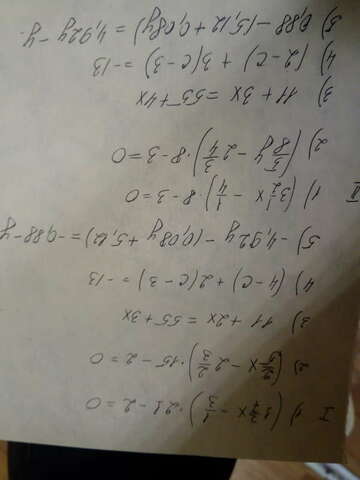 I 1) (1 3/7 x − 1/3) · 21 − 2 = 0
2) (2/5 x − 2 2/3) · 15 − 2 = 0
3) 11 + 2x = 55 + 3x
4) (4 − c) + 2(c − 3) = −13
5) −4,92y − (0,08y + 5,12) = −0,88 − y
II 1) (3 1/2 x − 1/4) · 8 − 3 = 0
2) (5/8 y − 2 3/4) · 8 − 3 = 0
3) 11 + 3x = 55 + 4x
4) (2 − c) + 3(c − 3) = −13
5) 0,88 − (5,12 + 0,08y) = 4,92y − y.